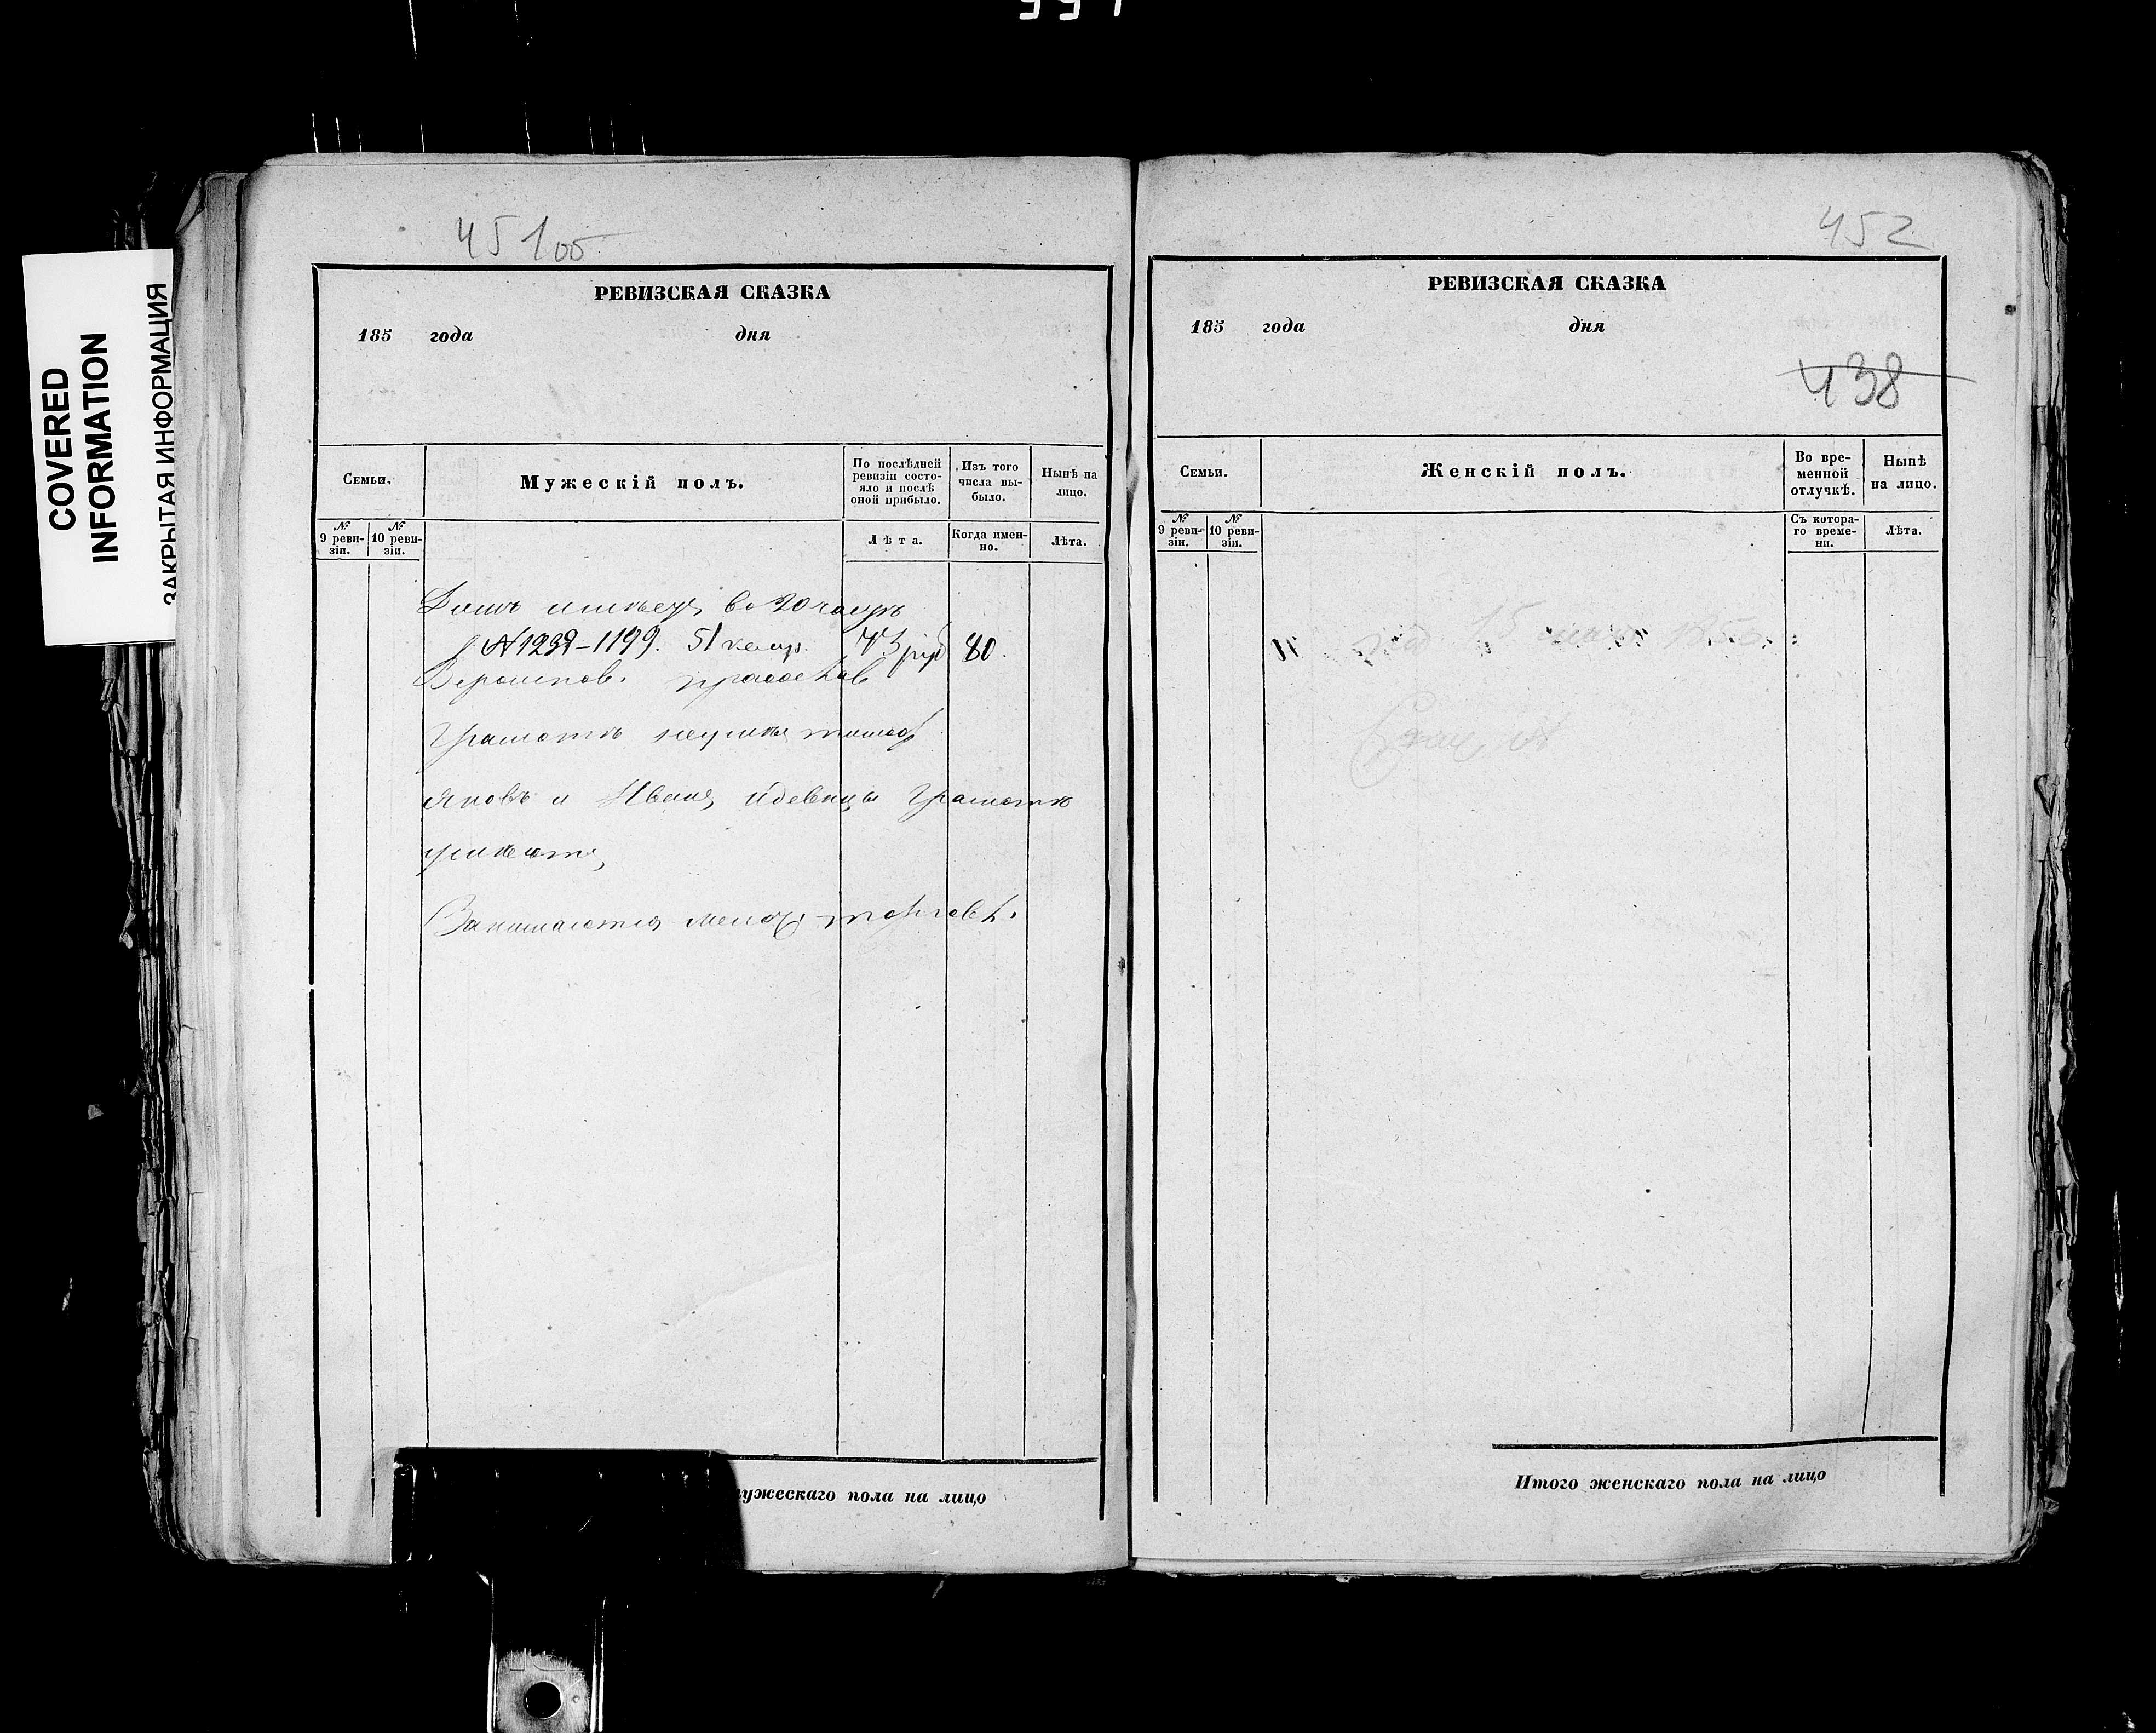 COVERED
INFORMATION
ЗАКРЫТАЯ ИНФОРМАЦИЯ
45 1об
РЕВИЗСКАЯ СКАЗКА
185 года дня
Семьи.
Мужескій полъ.
По послѣдней
ревизіи состо-
яло и послѣ
оной прибыло.
Изъ того
числа вы-
было.
Нынѣ на
лицо.
№
9 реви-
зіи.
№
10 реви-
зіи.
Лѣта.
Когда имен-
но.
Лѣта.
Домъ имѣетъ во 2о
№ 1239-1199. 51 80.
Грамотѣ
Яковъ и Иванъ Грамотѣ
умѣютъ,
Занимаются мелоч. торговл.
мужескаго пола на лицо
452
РЕВИЗСКАЯ СКАЗКА
185 года дня
438
Семьи.
Женскій полъ.
Во вре-
менной
отлучкѣ.
Нынѣ
на лицо.
№
9 реви-
зіи.
№
10 реви-
зіи.
Съ котора-
го време-
ни.
Лѣта.
Итого женскаго пола на лицо